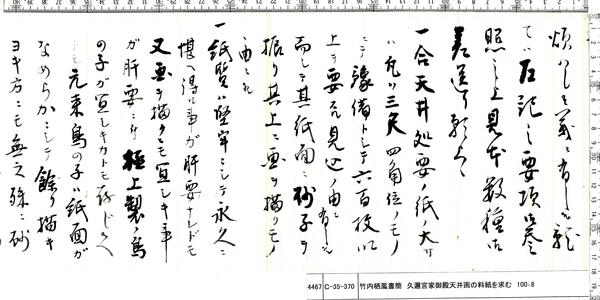 煩ハし
てハ左記之要項御参
照之上見本数種御
差送り願上
一合天井処要ノ紙ノ大サ
ハ凡ソ三尺四角位ノモノ
ニテ豫備トシテ六百枚以
上ヲ要スル見込ノ由
而シテ其紙面ニ砂子ヲ
振リ其上ニ画ヲ描クモノ
由ニ
一紙質ハ堅牢ニシテ永久ニ
堪ヘ得ル事ガ肝要ナレドモ
又画ヲ描クニモ宜シキ事
ガ肝要ニ 極上製ノ鳥
の子が宜しきカトモ存じ
元来鳥の子ハ紙面が
なめらかニシテ餘り描キ
ヨキ方ニモ無之殊ニ砂
4467 C-35-370 竹内栖鳳書簡 久邇宮家御殿天井画の料紙を求む 100-8